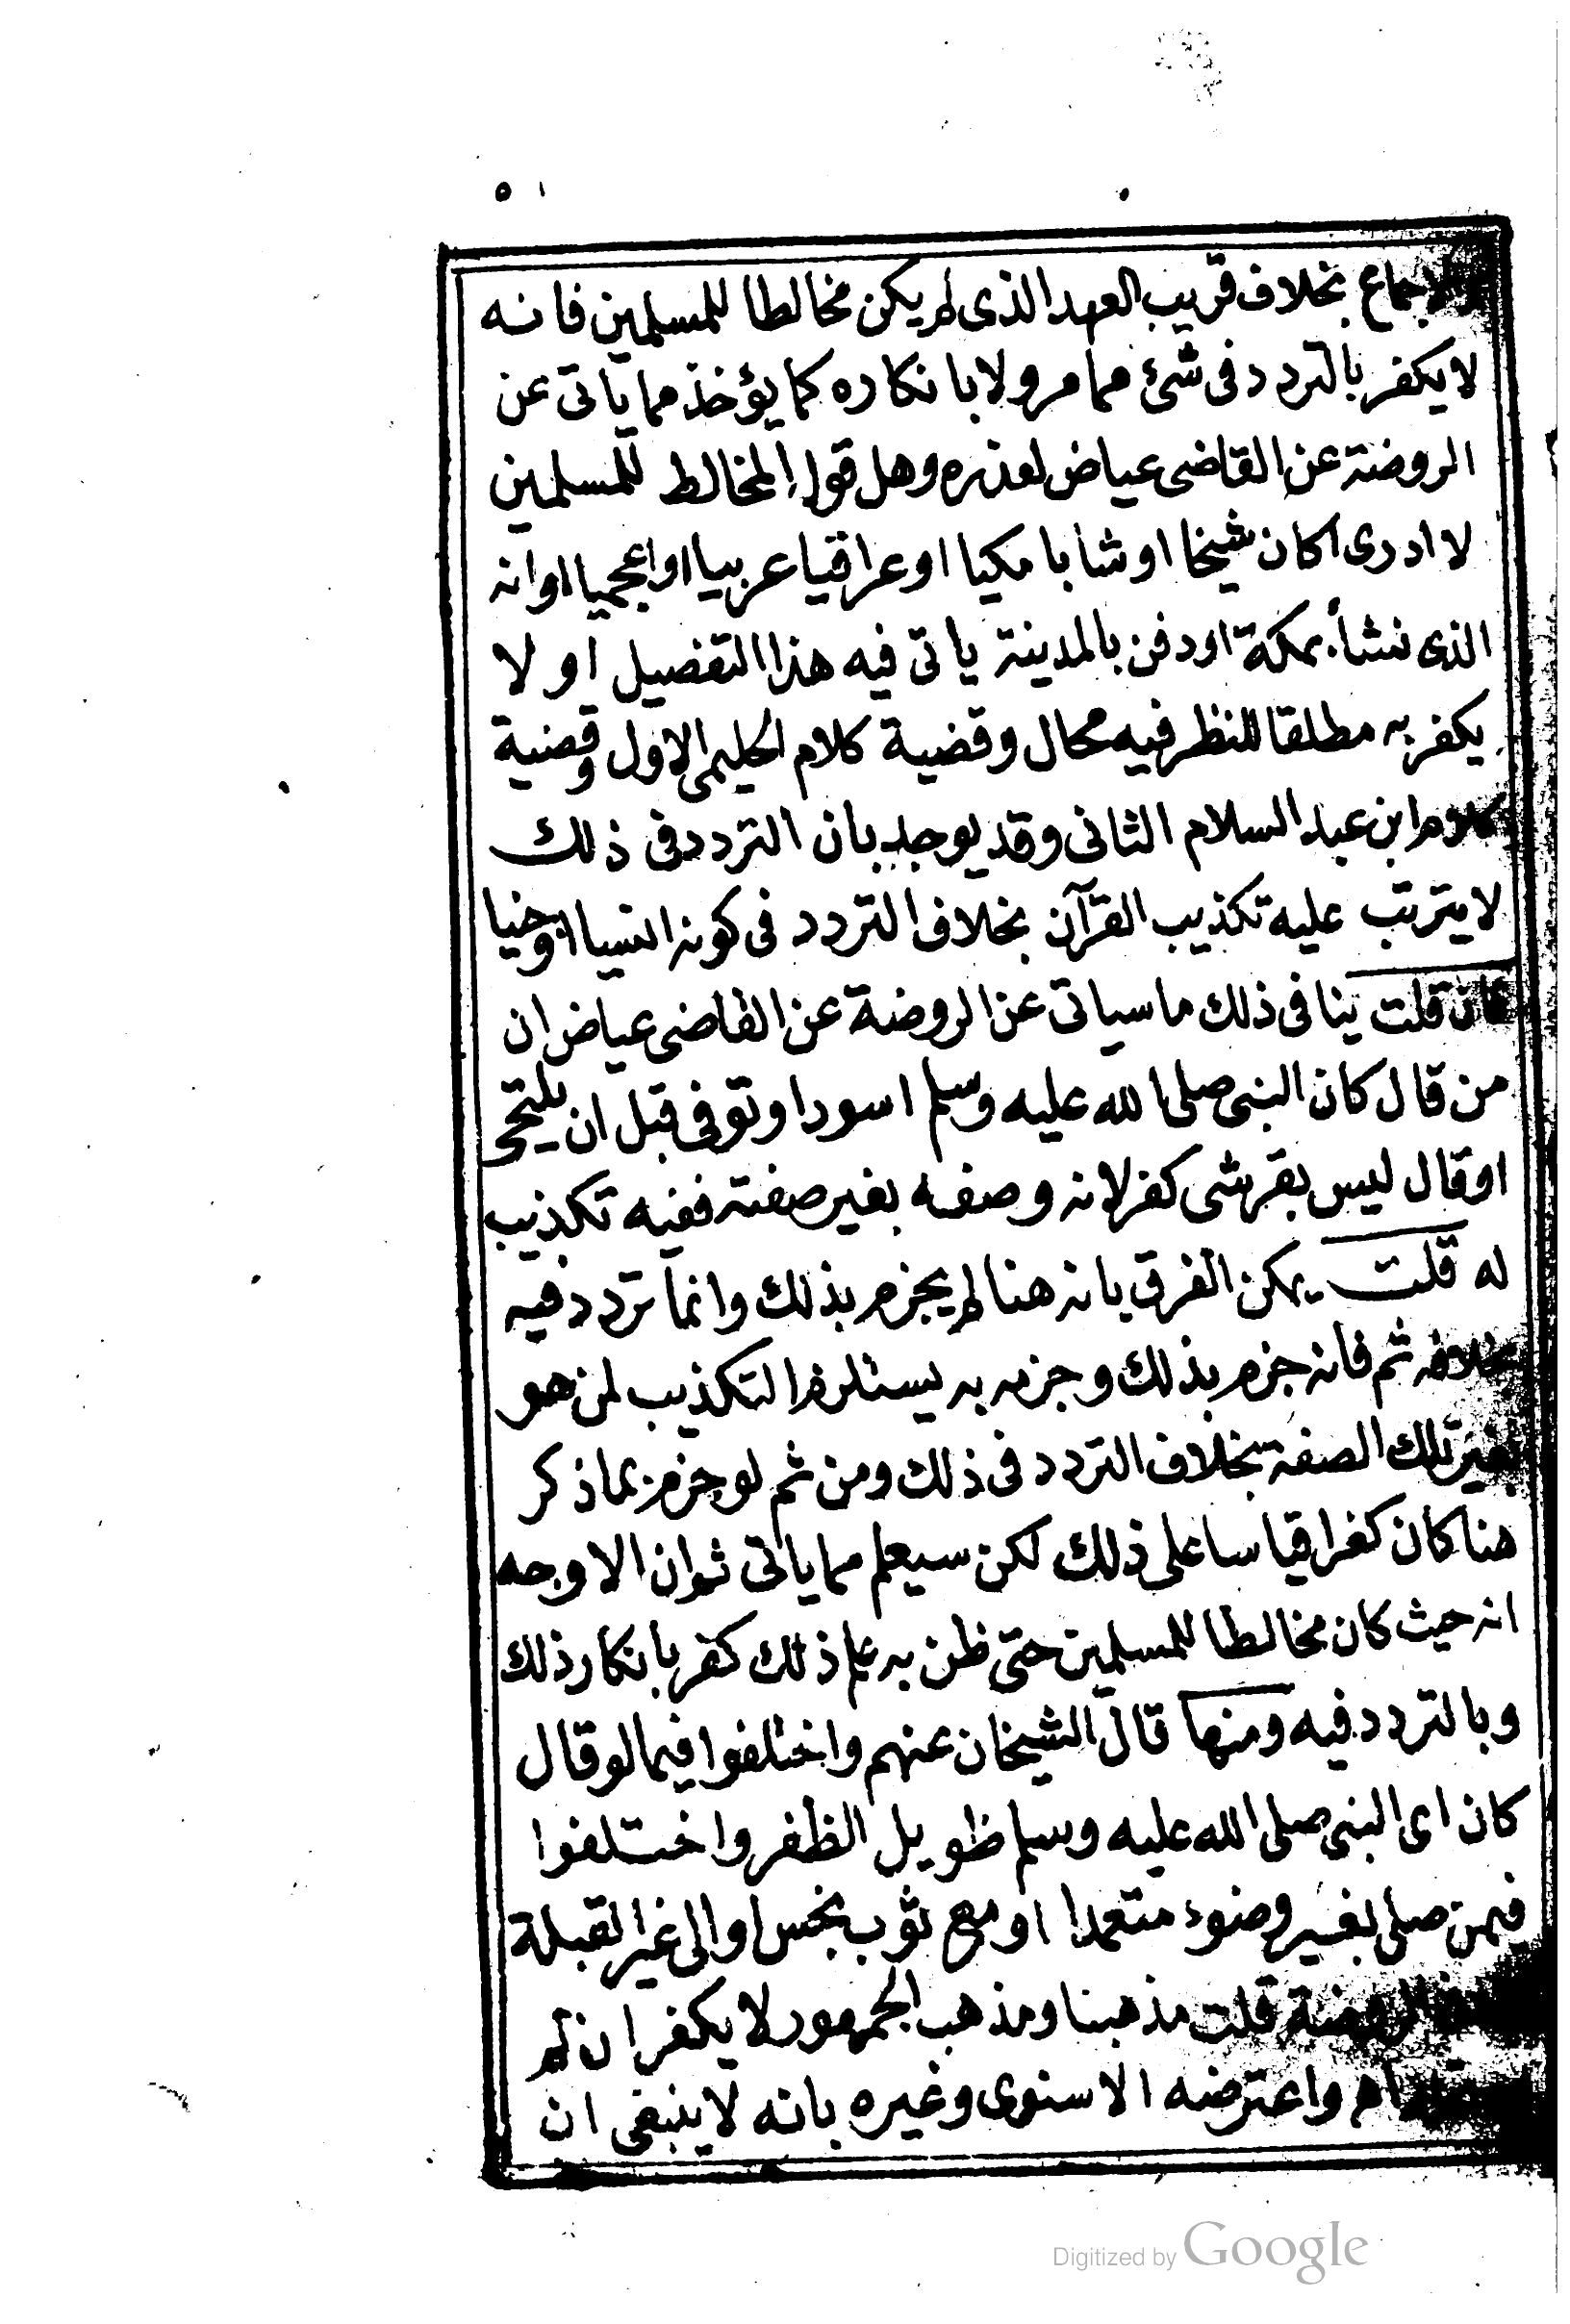 ٥١
والاجماع بخلاف قريب العهد الذى لم يكن مخالطا للمسلمين فانه
لا يكفر بالتردد فى شئ مما مر ولا بانكاره كما يؤخذ مما ياتى عن
الروضة عن القاضى عياض لعذره وهل قول المخالط للمسلمين
لا ادرى اكان شيخا او شابا مكيا او عراقيا عربيا او اعجميا او انه
الذى نشأ بمكة او دفن بالمدينة ياتى فيه هذا التفصيل او لا
يكفر به مطلقا للنظر فيه مجال وقضية كلام الحليمى الاول وقضية
كلام ابن عبد السلام الثانى وقد يوجه بان التردد فى ذلك
لا يترتب عليه تكذيب القرآن بخلاف التردد فى كونه انسيا او جنيا
فان قلت ينافى ذلك ما سياتى عن الروضة عن القاضى عياض ان
من قال كان النبى صلى الله عليه وسلم اسود او توفى قبل ان يلتحى
او قال ليس بقرشى كفر لانه وصفه بغير صفته ففيه تكذيب
له قلت يمكن الفرق بانه هنا لم يجزم بذلك وانما تردد فيه
بخلافه ثم فانه جزم بذلك وجزمه به يستلزم التكذيب لمن هو
بغير تلك الصفة بخلاف التردد فى ذلك ومن ثم لو جزم بما ذكر
هنا كان كفرا قياسا على ذلك لكن سيعلم مما ياتى ثم ان الاوجه
انه حيث كان مخالطا للمسلمين حتى ظن به علم ذلك كفر بانكار ذلك
وبالتردد فيه ومنها قال الشيخان عنهم واختلفوا فيما لو قال
كان اى النبى صلى الله عليه وسلم طويل الظفر واختلفوا
فيمن صلى بغير وضوء متعمدا او مع ثوب نجس او الى غير القبلة
الروضة قلت مذهبنا ومذهب الجمهور لا يكفر ان لم
واعترضه الاسنوى وغيره بانه لا ينبغى ان
Digitized by Google